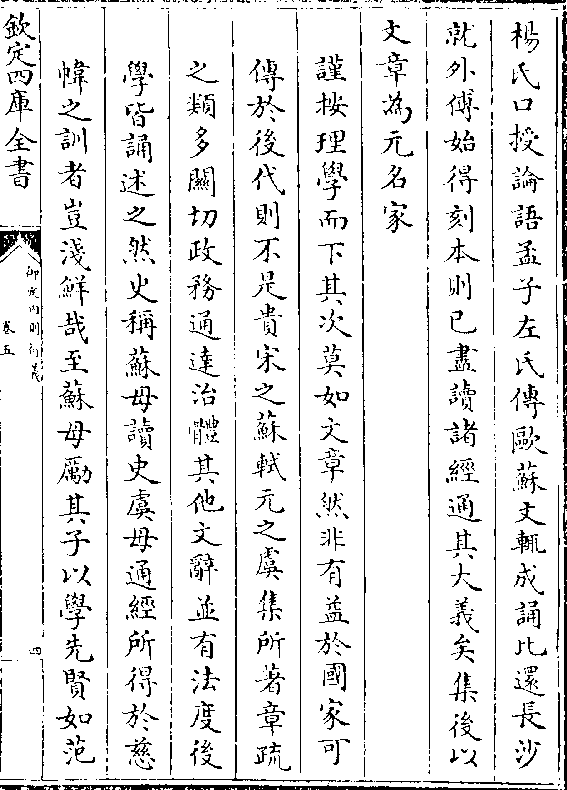 楊氏口授論語孟子左氏傳歐蘇文輒成誦比還長沙
就外傅始得刻本則已盡讀諸經通其大義矣集後以
文章為元名家
謹按理學而下其次莫如文章然非有益於國家可
傳於後代則不足貴宋之蘇軾元之虞集所著章疏
之類多關切政務通達治體其他文辭並有法度後
學皆誦述之然史稱蘇母讀史虞母通經所得於慈
幃之訓者豈淺鮮哉至蘇母勵其子以學先賢如范
欽定四庫全書
御定内則衍義
卷五
四